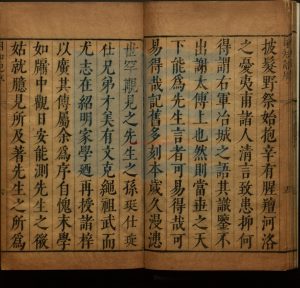 披髮野祭始抱辛有腥羶河洛
之憂夷甫諸人清言致患抑何
得謂右軍冶城之語其識鑒不
出謝太傅上也然則當垂之天
下能爲先生言者可易得哉可
易得哉記舊多刻本歲久漫漶
世罕覯見之先生之孫珽仕珽
仕兄弟才美有文克繩祖武而
尤志在紹明家學迺再授諸梓
以廣其傳屬余爲序自愧末學
如牖中觀日安能測先生之微
姑就臆見所及著先生之所爲